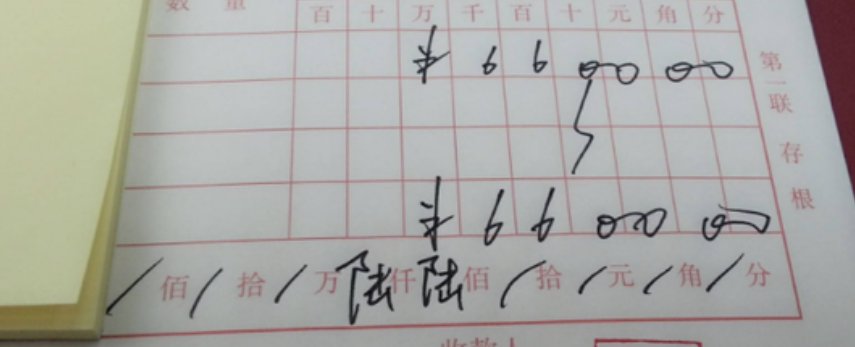 数 量 百 十 万 千 百 十 元 角 分
¥ 6 6 0 0 0 0
¥ 6 6 0 0 0 0
/ 佰 / 拾 / 万 陆 仟 陆 佰 / 拾 / 元 / 角 / 分
收款人
第一联 存根